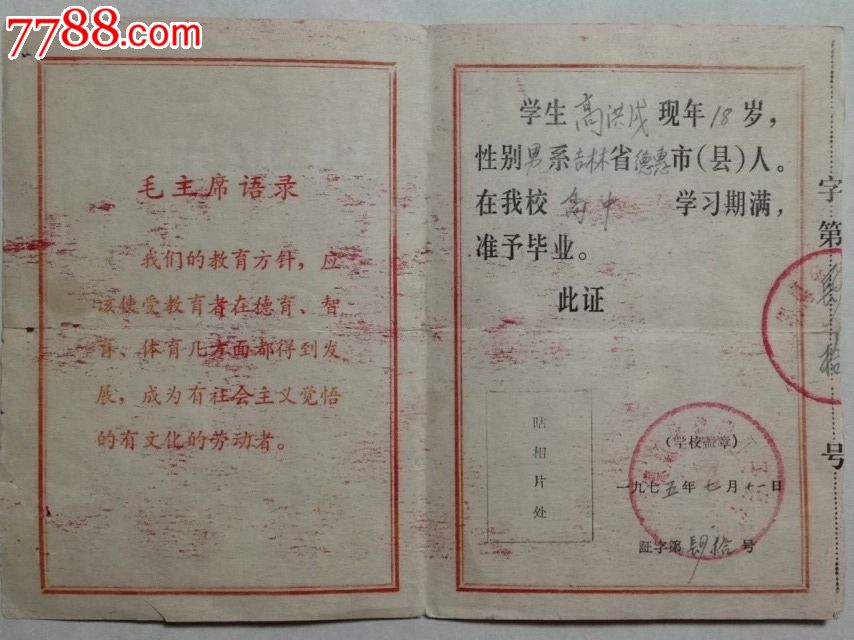 7788.com
毛主席语录
我们的教育方针，应
该使受教育者在德育、智
育、体育几方面都得到发
展，成为有社会主义觉悟
的有文化的劳动者。
学生高洪成现年18岁，
性别男系吉林省德惠市(县)人。
在我校高中 学习期满，
准予毕业。
此证
贴相片处
(学校盖章)
一九七五年七月十一日
证字第肆拾号
字第 肆拾 号